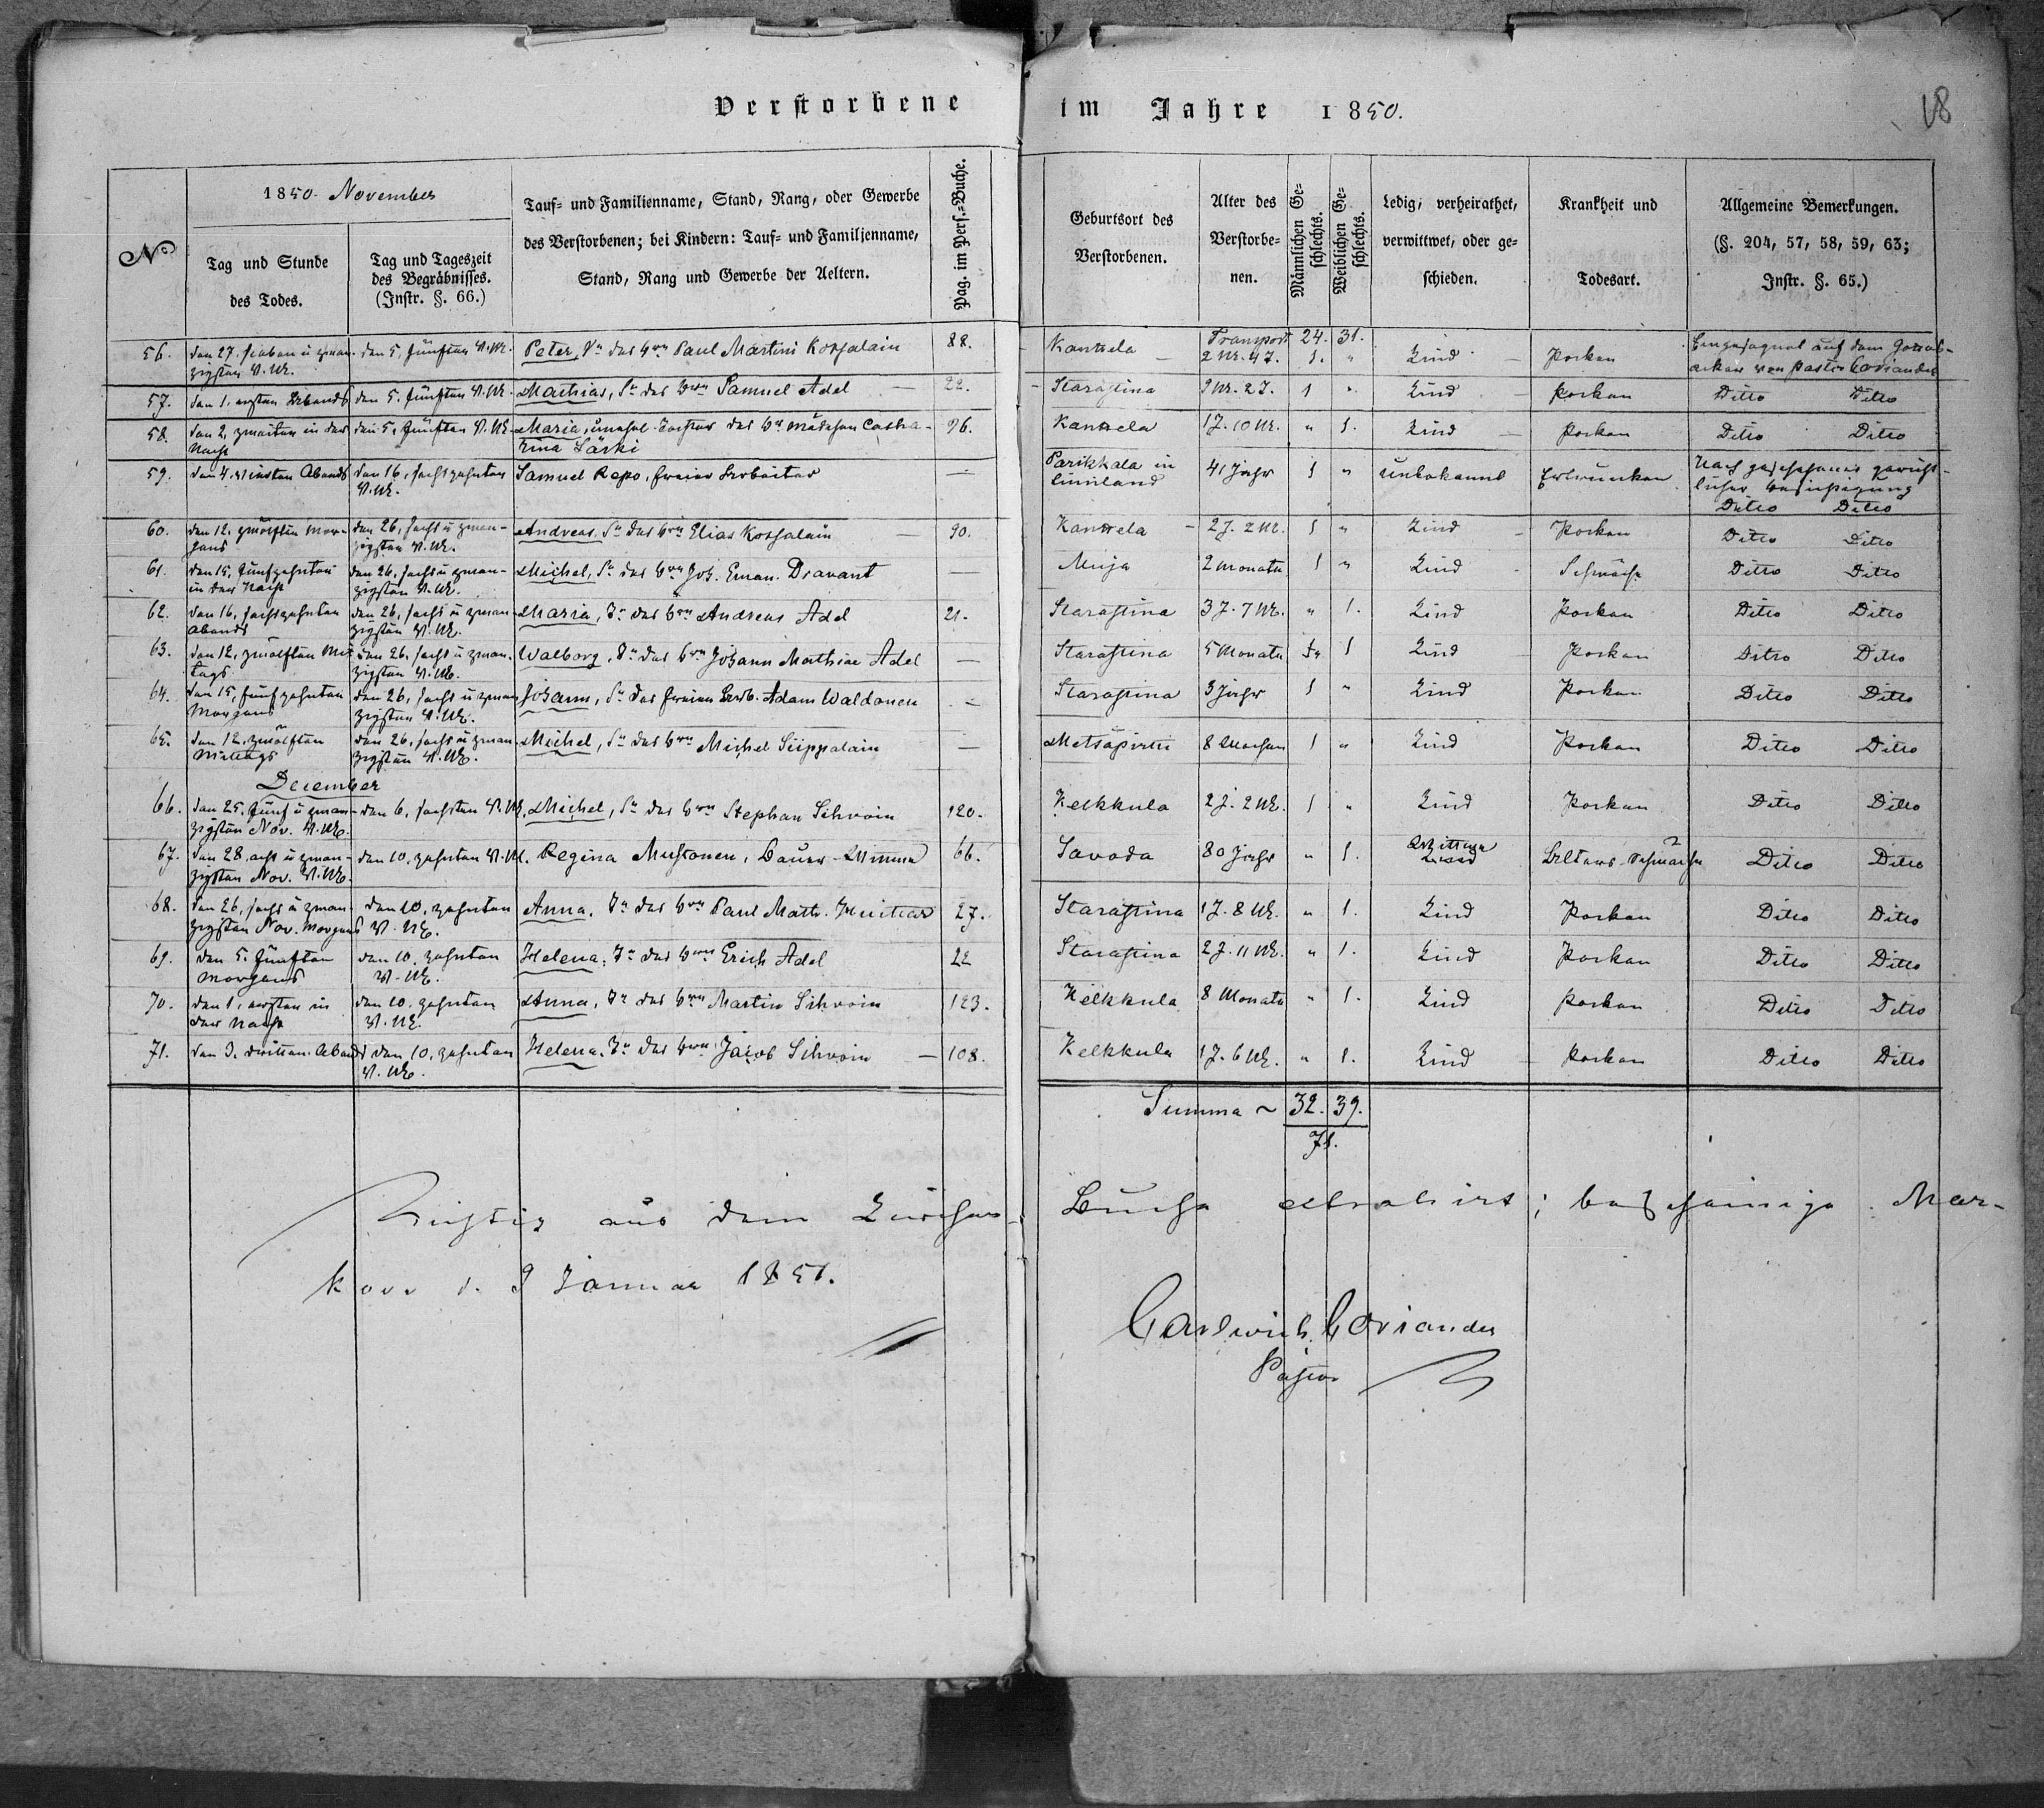 Verstorbene im Jahre 1850.
18
No
1850. November
Tag und Stunde
des Todes.
Tag und Tageszeit
des Begräbnisses.
(Instr. §. 66.)
Tauf- und Familienname, Stand, Rang, oder Gewerbe
des Verstorbenen; bei Kindern: Tauf- und Familienname,
Stand, Rang und Gewerbe der Aeltern.
Pag. im Pers.-Buche.
Geburtsort des
Verstorbenen.
Alter des
Verstorbe-
nen.
Männlichen Ge-
schlechts.
Weiblichen Ge-
schlechts.
Ledig, verheirathet,
verwittwet, oder ge-
schieden.
Krankheit und
Todesart.
Allgemeine Bemerkungen.
(§. 204, 57, 58, 59, 63;
Instr. §. 65.)
Transport 24. 31.
56. den 27. sieben u zwan- den 5. fünften V. M. Peter, Sn des Paul Martini Kosjalain 88. Kantela 2 M. 4 T. 1. " Kind Pocken Eingesegnet auf dem Gottes-
zigsten V. M. acker von Pastor Coriander
57. den 1. ersten Abends den 5. fünften V. M. Mathias, Sn des Samuel Adel 22. Starastina 9 M. 2 T. 1 " Kind Pocken Ditto Ditto
58. den 2. zweiten in der den 5. fünften V. M. Maria, unehel. Tochter des Mädchen Catha- 96. Kantela 1 J. 10 M. " 1. Kind Pocken Ditto Ditto
Nacht rina Särki
59. den 4. vierten Abends den 16. sechszehnten Samuel Repo, freier Arbeiter — Parikkala in 41 Jahr 1 " unbekannt Ertrunken Nach geschehener gericht-
V. M. Finnland licher Besichtigung
Ditto Ditto
60. den 12. zwölften Mor- den 26. sechs u zwan- Andreas, Sn des Elias Kosjalain 90. Kantela 2 J. 2 M. 1 " Kind Pocken Ditto Ditto
gens zigsten V. M.
61. den 15. fünfzehnten den 26. sechs u zwan- Michel, Sn des Joh. Eman. Dravant — Muja 2 Monate 1 " Kind Schwäche Ditto Ditto
in der Nacht zigsten V. M.
62. den 16. sechszehnten den 26. sechs u zwan- Maria, Tr des Andreas Adel 21. Starastina 3 J. 7 M. " 1. Kind Pocken Ditto Ditto
Abends zigsten V. M.
63. den 12. zwölften Mit- den 26. sechs u zwan- Walborg, Tr des Johann Mathiae Adel — Starastina 5 Monate 1 Kind Pocken Ditto Ditto
tags zigsten V. M.
64. den 15. fünfzehnten den 26. sechs u zwan- Johann, Sn des freien Arb. Adam Waldonen — Starastina 3 Jahr 1 " Kind Pocken Ditto Ditto
Morgens zigsten V. M.
65. den 12. zwölften den 26. sechs u zwan- Michel, Sn des Michel Siippalain — Metsäpirtti 8 Wochen 1 " Kind Pocken Ditto Ditto
Mittags zigsten V. M.
December
66. den 25. fünf u zwan- den 6. sechsten V. M. Michel, Sn des Stephan Sihvoin 120. Kelkkula 2 J. 2 M. 1 " Kind Pocken Ditto Ditto
zigsten Nov. V. M.
67. den 28. acht u zwan- den 10. zehnten V. M. Regina Mustonen, Bauer-Wittwe 66. Savoda 80 Jahr " 1. Wittwe Alters-Schwäche Ditto Ditto
zigsten Nov. V. M.
68. den 26. sechs u zwan- den 10. zehnten Anna, Tr des Paul Math. 27. Starastina 1 J. 8 M. " 1. Kind Pocken Ditto Ditto
zigsten Nov. Morgens V. M.
69. den 5. fünften den 10. zehnten Helena, Tr des Erich Adel 22 Starastina 2 J. 11 M. " 1. Kind Pocken Ditto Ditto
Morgens V. M.
70. den 1. ersten in den 10. zehnten Anna, Tr des Martin Sihvoin 123. Kelkkula 8 Monate " 1. Kind Pocken Ditto Ditto
der Nacht V. M.
71. den 3. dritten Abends den 10. zehnten Helena, Tr des Jacob Sihvoin — 108. Kelkkula 1 J. 6 M. " 1. Kind Pocken Ditto Ditto
V. M.
Summa ~ 32. 39.
71.
Richtig aus dem Kirchen- Buche extrahirt; bescheinige. Mar-
kova d. 9 Januar 1851.
Coriander
Pastor